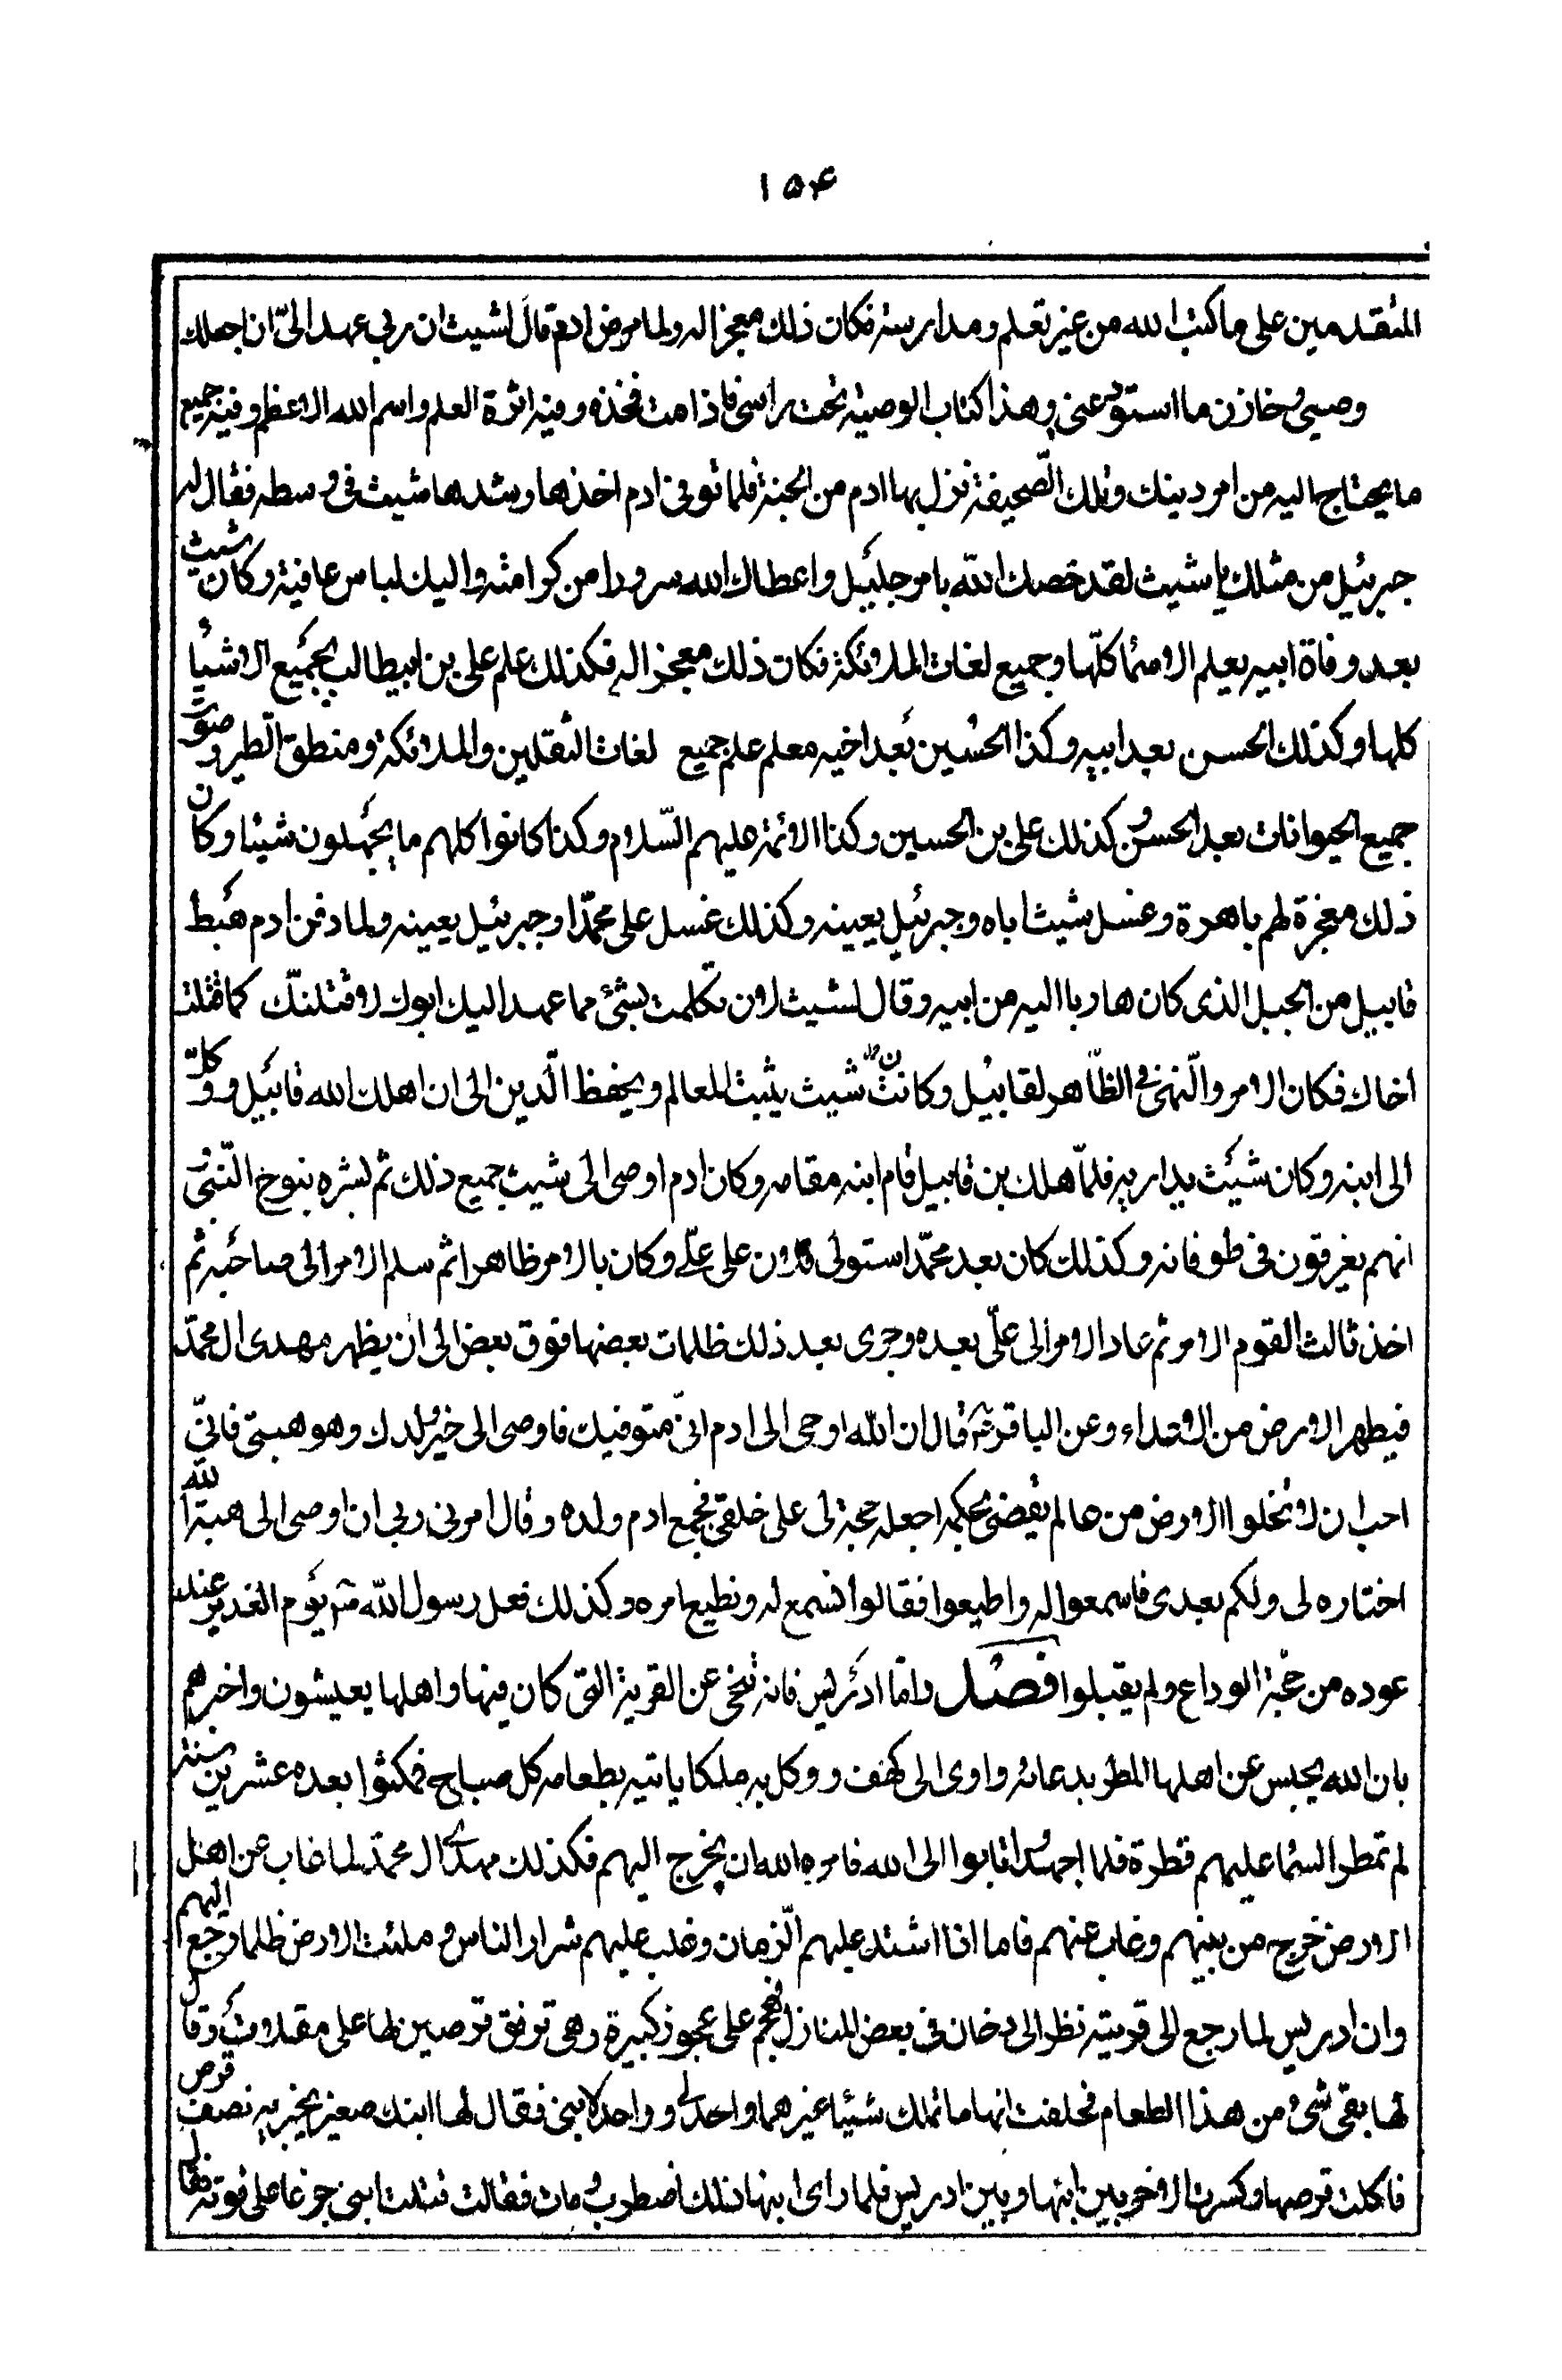 ١٥۴
المتقدمين على ما كتب الله من غير تعلم ومدارسته فكان ذلك معجزا له ولما مرض ادم قال لشيث ان ربي عهد الىّ ان اجعلك
وصيي وخازن ما استودعني وهذا كتاب الوصية تحت راسى فاذا مت فخذه وفيه اثرة العلم واسم الله الاعظم وفيه جميع
ما يحتاج اليه من امر دينك وتلك الصّحيفة نزل بها ادم من الجنة فلما توفى ادم اخذها وشدها شيث فى وسطه فقال له
جبرئيل من مثلك يا شيث لقد خصك الله بامر جليل واعطاك الله سرورا من كرامته واليك لباس عافية وكان شيث
بعد وفاة ابيه يعلم الاسما كلّها وجميع لغات الملائكة فكان ذلك معجزا له فكذلك علم على بن ابيطالب بجميع الاشيا
كلها وكذلك الحسن بعد ابيه وكذا الحسين بعد اخيه معلم علم جميع لغات الثقلين والملائكة ومنطق الطير وصوت
جميع الحيوانات بعد الحسن وكذلك على بن الحسين وكذا الائمة عليهم السّلام وكذا كانوا كلهم ما يجهلون شيئا وكان
ذلك معجزة لهم باهرة وغسل شيث اباه وجبرئيل يعينه وكذلك غسل على محمّدا وجبرئيل يعينه ولما دفن ادم هبط
قابيل من الجبل الذى كان هاربا اليه من ابيه وقال لشيث لان تكلمت بشئ مما عهد اليك ابوك لاقتلنّك كما قتلت
اخاك فكان الامر والنهى فى الظّاهر لقابيل وكانت شيث يثبت للعالم ويحفظ الّدين الى ان اهلك الله قابيل ووكلّ
الى ابنه وكان شيث يداريه فلمّا هلك بن قابيل قام ابنه مقامه وكان ادم اوصى الى شيث جميع ذلك ثم بشره بنوح النّبى
انهم يغرقون فى طوفانه وكذلك كان بعد محمّد استولى فلان على علّى وكان بالامر ظاهرا ثم سلم الامر الى صاحبه ثم
اخذ ثالث القوم الامر ثم عاد الامر الى علّى بعده وجرى بعد ذلك ظلمات بعضها فوق بعض الى ان يظهر مهدى ال محمّد
فيطهر الارض من الاعداء وعن الباقر قال ان الله اوحى الى ادم انىّ متوفيك فاوصى الى خير ولدك وهو هبتى فانىّ
احب ان لا تخلوا الارض من عالم يقضى بحكمى اجعله حجة لى على خلقى فجمع ادم ولده وقال امرنى ربى ان اوصى الى هبة الله
اختاره لى ولكم بعدى فاسمعوا له واطيعوا فقالوا نسمع له ونطيع امره وكذلك فعل رسول الله يوم الغدير عند
عوده من حجة الوداع ولم يقبلوا فصل واما ادريس فانه تنحى عن القرية التى كان فيها واهلها يعيشون واخبرهم
بان الله يحبس عن اهلها المطر بدعائه واوى الى كهف ووكل به ملكا ياتيه بطعامه كل صباح فمكثوا بعده عشرين سنة
لم تمطر السّما عليهم قطرة فلما اجهدوا تابوا الى الله فامره الله ان يخرج اليهم فكذلك مهدى ال محمّد لما غاب عن اهل
الارض خرج من بينهم وغاب عنهم فاما اذا اشتد عليهم الّزمان وغلب عليهم شرار الناس وملئت الارض ظلما رجع اليهم
وان ادريس لما رجع الى قريته نظر الى دخان فى بعض المنازل فهجم على عجوز كبيرة وهى ترقق قرصين لها على مقلاة وقال
لها بقى شئ من هذا الطعام فحلفت انها ما تملك شيئا غيرهما واحد لى وواحد لابنى فقال لها ابنك صغير يجزيه نصف قرص
فاكلت قرصها وكسرت الاخر بين ابنها وبين ادريس فلما راى ابنها ذلك اضطرب ومات فقالت قتلت ابنى جزعا على قوته فقال